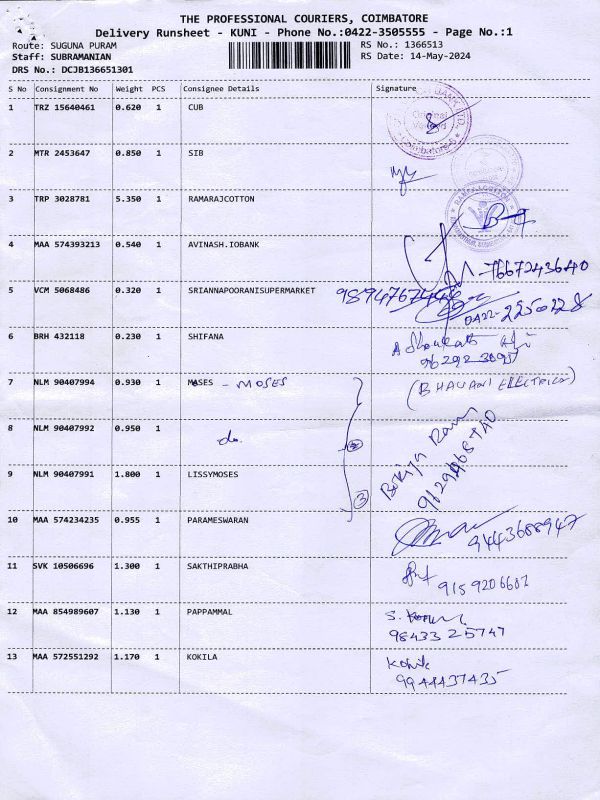 THE PROFESSIONAL COURIERS, COIMBATORE
Delivery Runsheet - KUNI - Phone No.:0422-3505555 - Page No.:1
Route: SUGUNA PURAM RS No.: 1366513
Staff: SUBRAMANIAN RS Date: 14-May-2024
DRS No.: DCJB136651301
S No Consignment No Weight PCS Consignee Details Signature
1 TRZ 15640461 0.620 1 CUB
2 MTR 2453647 0.850 1 SIB
3 TRP 3028781 5.350 1 RAMARAJCOTTON
4 MAA 574393213 0.540 1 AVINASH.IOBANK
5 VCM 5068486 0.320 1 SRIANNAPOORANISUPERMARKET
6 BRH 432118 0.230 1 SHIFANA
7 NLM 90407994 0.930 1 MOSES - MOSES (BHAVANI ELECTRICAL)
8 NLM 90407992 0.950 1 do.
9 NLM 90407991 1.800 1 LISSYMOSES
3
10 MAA 574234235 0.955 1 PARAMESWARAN 9443688947
11 SVK 10506696 1.300 1 SAKTHIPRABHA
12 MAA 854989607 1.130 1 PAPPAMMAL
98433 25747
13 MAA 572551292 1.170 1 KOKILA
9944437435